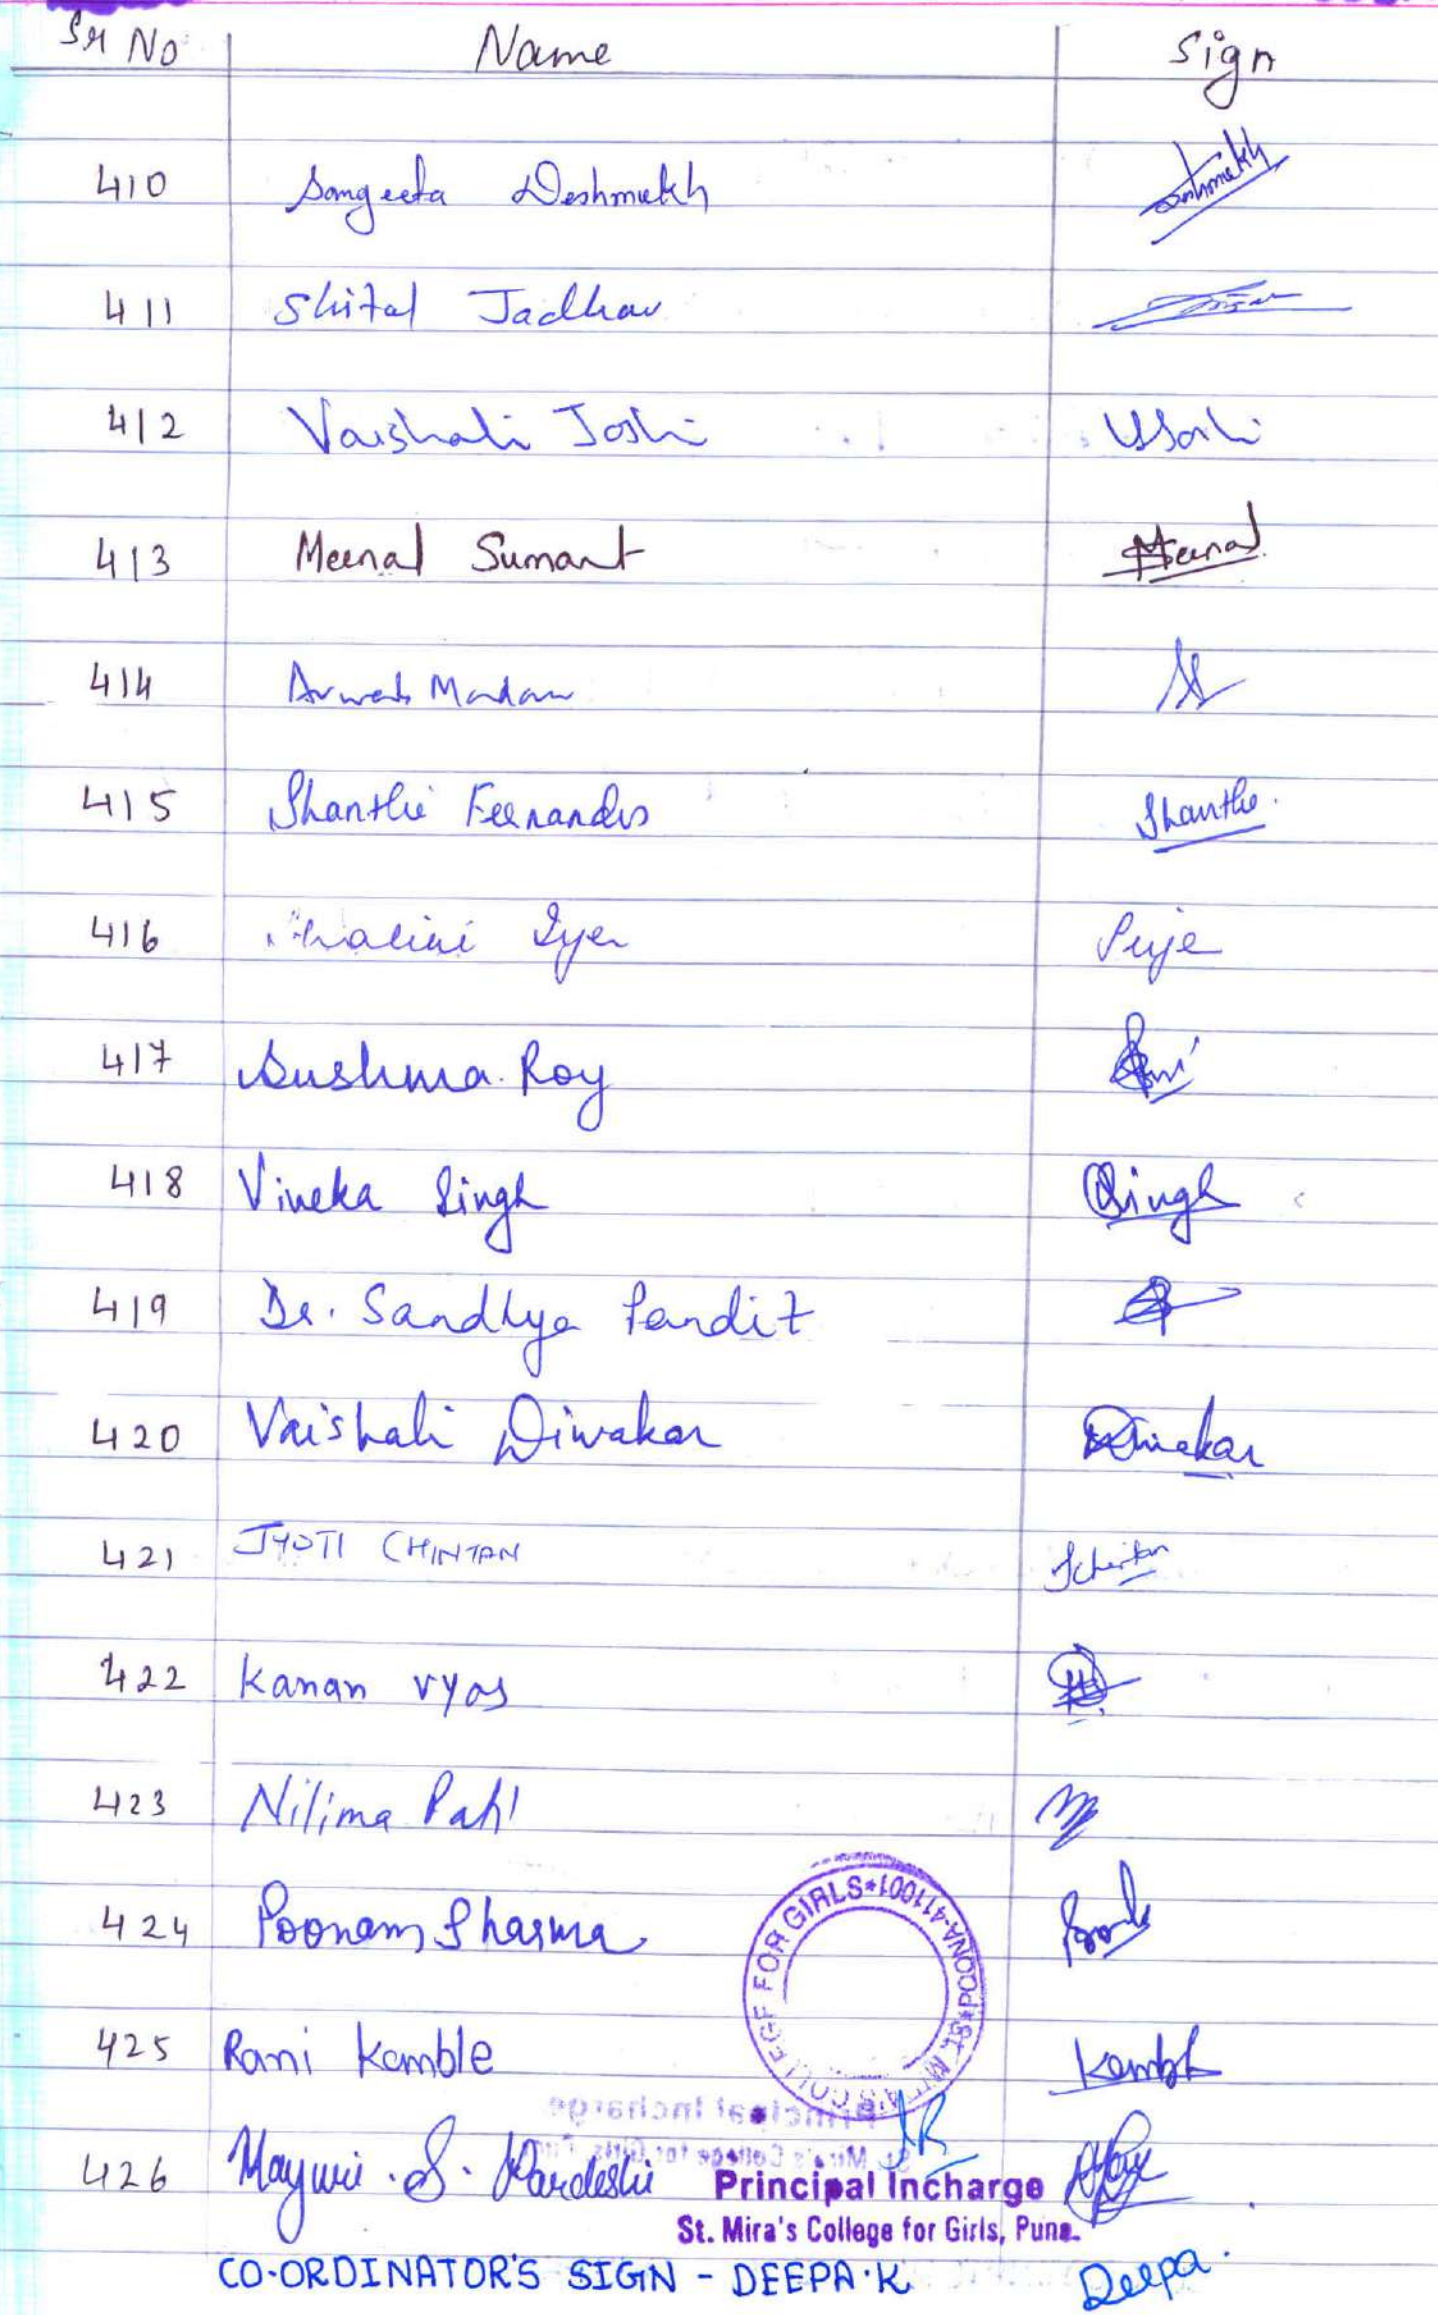 Sr No Name Sign
410 Sangeeta Deshmukh Deshmukh
411 Shital Jadhav
412 Vaishali Joshi VJoshi
413 Meenal Sumant Meenal
414 Madan
415 Shanthi Fernandes Shanthi.
416 Iyer
417 Sushma Roy
418 Viveka Singh Singh
419 Dr. Sandhya Pandit
420 Vaishali Diwakar Diwakar
421 JYOTI CHINTAN JChintan
422 Kanan Vyas
423 Nilima Patil
424 Poonam Sharma
425 Rani Kamble Kamble
COLLEGE FOR GIRLS*POONA-411001*St. MIRA'S
426 Mayuri . S. Pardeshi
Principal Incharge
St. Mira's College for Girls, Pune.
CO-ORDINATOR'S SIGN - DEEPA.K. Deepa.